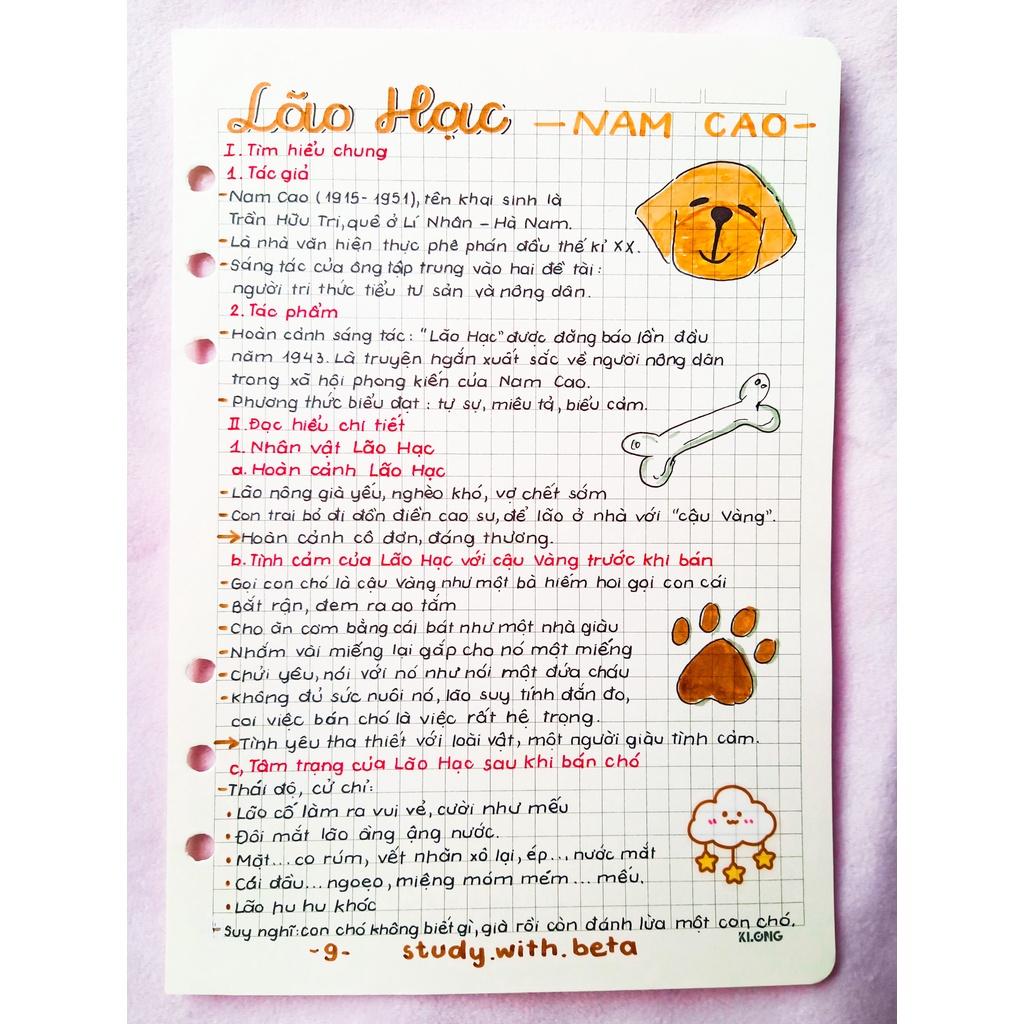 Lão Hạc - NAM CAO -
I. Tìm hiểu chung
1. Tác giả
- Nam Cao (1915-1951), tên khai sinh là
Trần Hữu Tri, quê ở Lí Nhân - Hà Nam.
- Là nhà văn hiện thực phê phán đầu thế kỉ XX.
- Sáng tác của ông tập trung vào hai đề tài:
người trí thức tiểu tư sản và nông dân.
2. Tác phẩm
- Hoàn cảnh sáng tác: "Lão Hạc" được đăng báo lần đầu
năm 1943. Là truyện ngắn xuất sắc về người nông dân
trong xã hội phong kiến của Nam Cao.
- Phương thức biểu đạt: tự sự, miêu tả, biểu cảm.
II. Đọc hiểu chi tiết
1. Nhân vật Lão Hạc
a. Hoàn cảnh Lão Hạc
- Lão nông già yếu, nghèo khó, vợ chết sớm
- Con trai bỏ đi đồn điền cao su, để lão ở nhà với "cậu Vàng".
→ Hoàn cảnh cô đơn, đáng thương.
b. Tình cảm của Lão Hạc với cậu Vàng trước khi bán
- Gọi con chó là cậu Vàng như một bà hiếm hoi gọi con cái
- Bắt rận, đem ra ao tắm
- Cho ăn cơm bằng cái bát như một nhà giàu
- Nhắm vài miếng lại gắp cho nó một miếng
- Chửi yêu, nói với nó như nói một đứa cháu
- Không đủ sức nuôi nó, lão suy tính đắn đo,
coi việc bán chó là việc rất hệ trọng.
→ Tình yêu tha thiết với loài vật, một người giàu tình cảm.
c, Tâm trạng của Lão Hạc sau khi bán chó
- Thái độ, cử chỉ:
• Lão cố làm ra vui vẻ, cười như mếu
• Đôi mắt lão ầng ậng nước.
• Mặt... co rúm, vết nhăn xô lại, ép... nước mắt
• Cái đầu... ngoẹo, miệng móm mém... mếu.
• Lão hu hu khóc
- Suy nghĩ: con chó không biết gì, già rồi còn đánh lừa một con chó.
KLONG
-9- study.with.beta